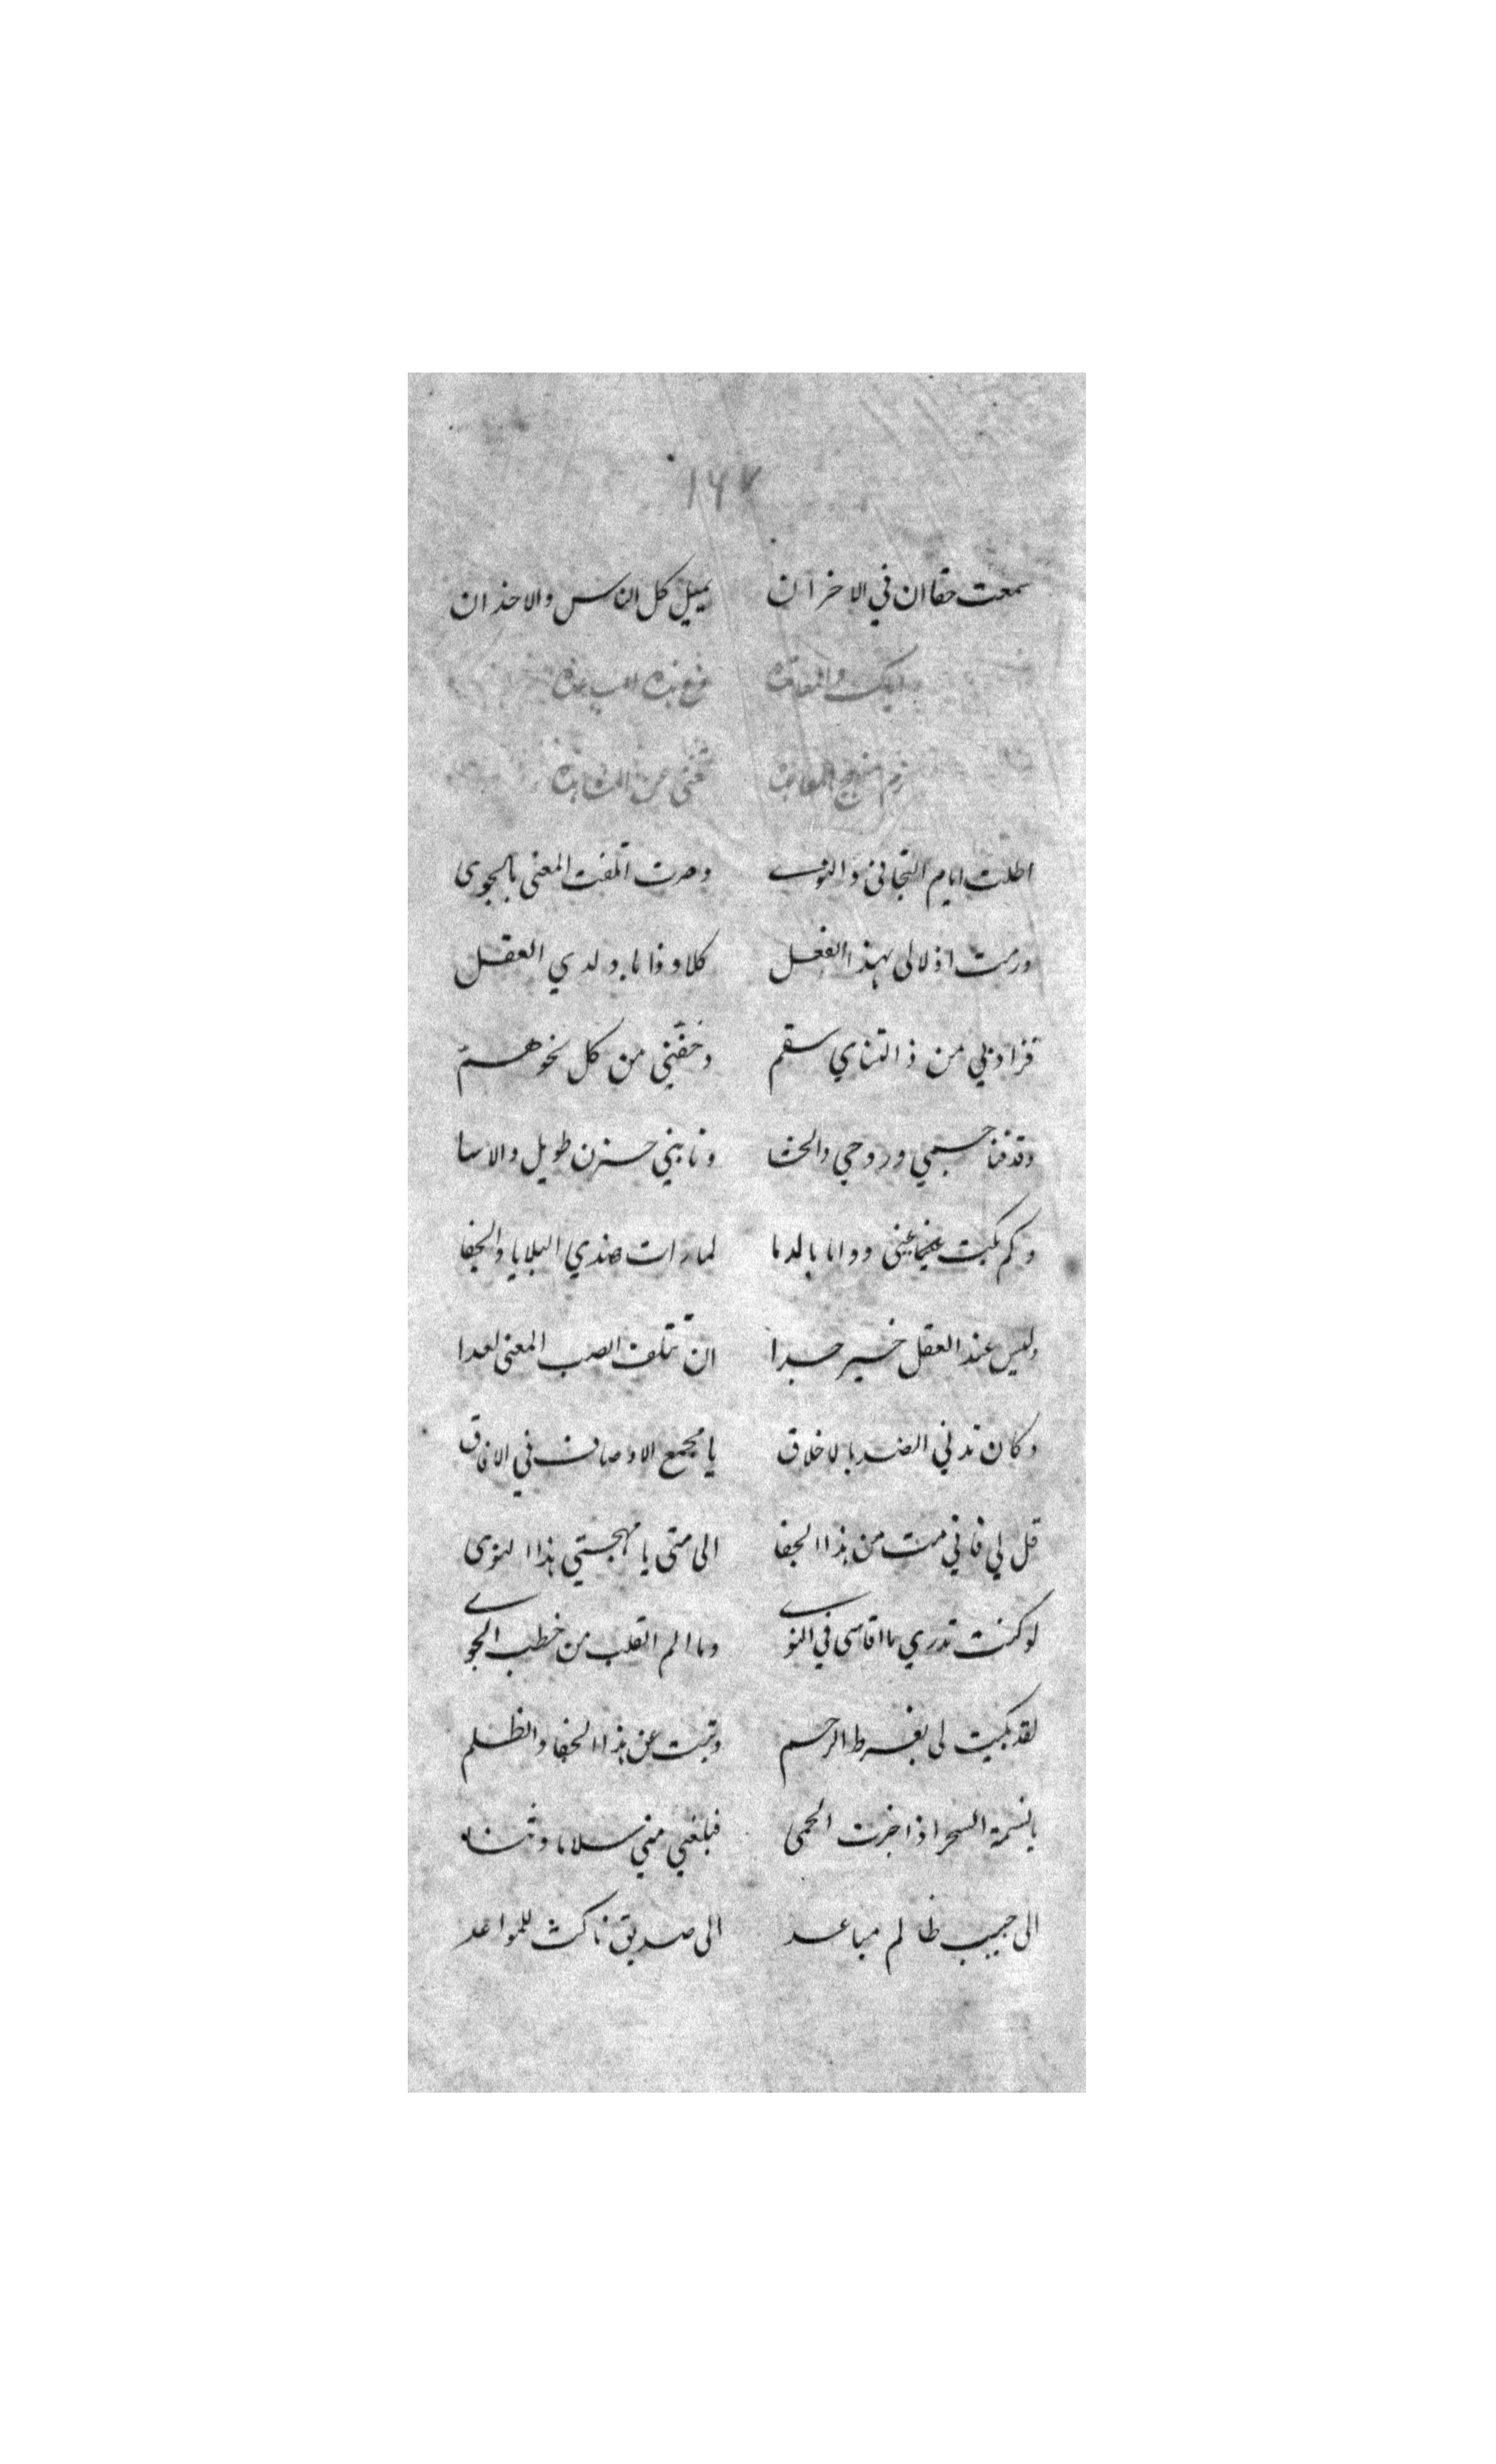 ١٦٧
سمعت حقا ان في الاخزان يميل كل الناس والاخذان
اياك والمعاقده مع هذه
المعانده تغني عن المشاهده
اطلت ايام التجافي والنوى وصرت اتلفت المعنى بالجوى
ورمت اذلالى بهذا الفعل كلا وذا ما ولدي العقل
فزاد بي من ذا التناي سقم وخفني من كل نحو هم
وقد فنا جسمي وروحي والحشا ونابني حزن طويل والاسا
وكم بكت عيني دواما بالدما لما رات هذي البلايا والجفا
وليس عند العقل خير جدا ان تتلف الصب المعنى عمدا
وكان تدني الضد بالاخلاق يا مجمع الاوصاف في الافاق
قل لي فاني مت من هذا الجفا الى متى يا مهجتي هذا النوى
لو كنت تدري ما اقاسى في النوى وما الم القلب من خطب الجوى
لقد بكيت لى بفرط الرحم وتبت عن هذا الجفا والظلم
يا نسمة السحر اذا جزت الحمى فبلغي مني سلاما وثناء
الى حبيب ظالم مباعد الى صديق ناكث للمواعد